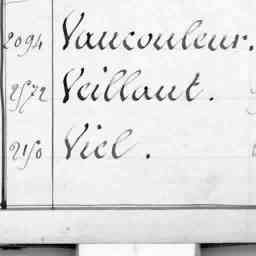 2094 Vaucouleur.
2572 Veillaut.
2150 Viel.